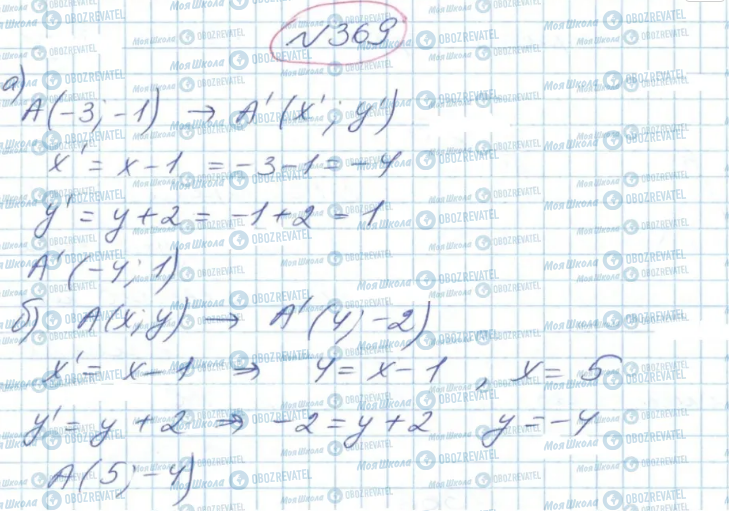 №369
а)
A(-3; -1) → A'(x'; y')
x' = x - 1 = -3 - 1 = -4
y' = y + 2 = -1 + 2 = 1
A'(-4; 1)
б) A(x; y) → A'(4; -2)
x' = x - 1 ⇒ 4 = x - 1, x = 5
y' = y + 2 ⇒ -2 = y + 2 y = -4
A(5; -4)